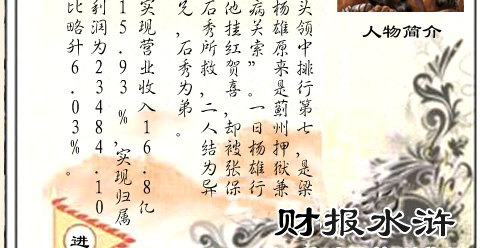 人物简介
头领中排行第七，是梁
杨雄原来是蓟州押狱兼
病关索”。一日杨雄行
他挂红贺喜，却被张保
石秀所救，二人结为异
兄，石秀为弟。
实现营业收入16.8亿
15.93%，实现归属
利润为23484.10
比略升6.03%。
财报水浒
进